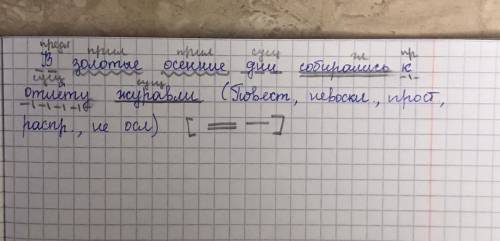 предл прил прил сущ гл пр
В золотые осенние дни собирались к
сущ сущ
отлету журавли (Повест, невоскл., прост,
распр., не осл) [ ═ — ]